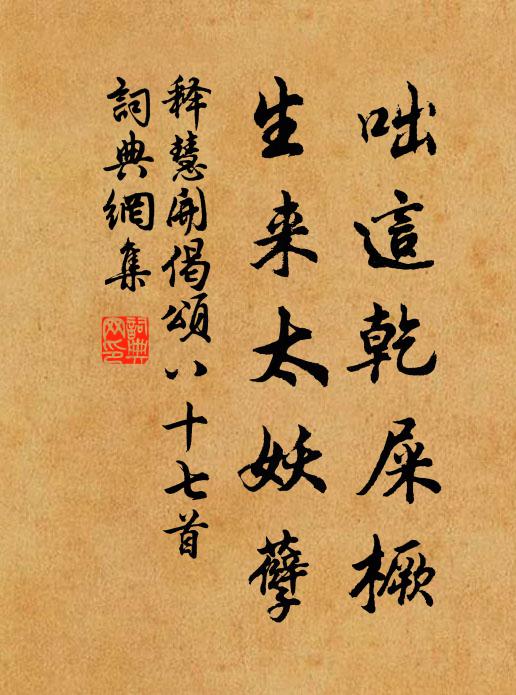 咄這乾屎橛
生来太妖孽
释慧開偈頌八十七首
詞典網集
詞典网印